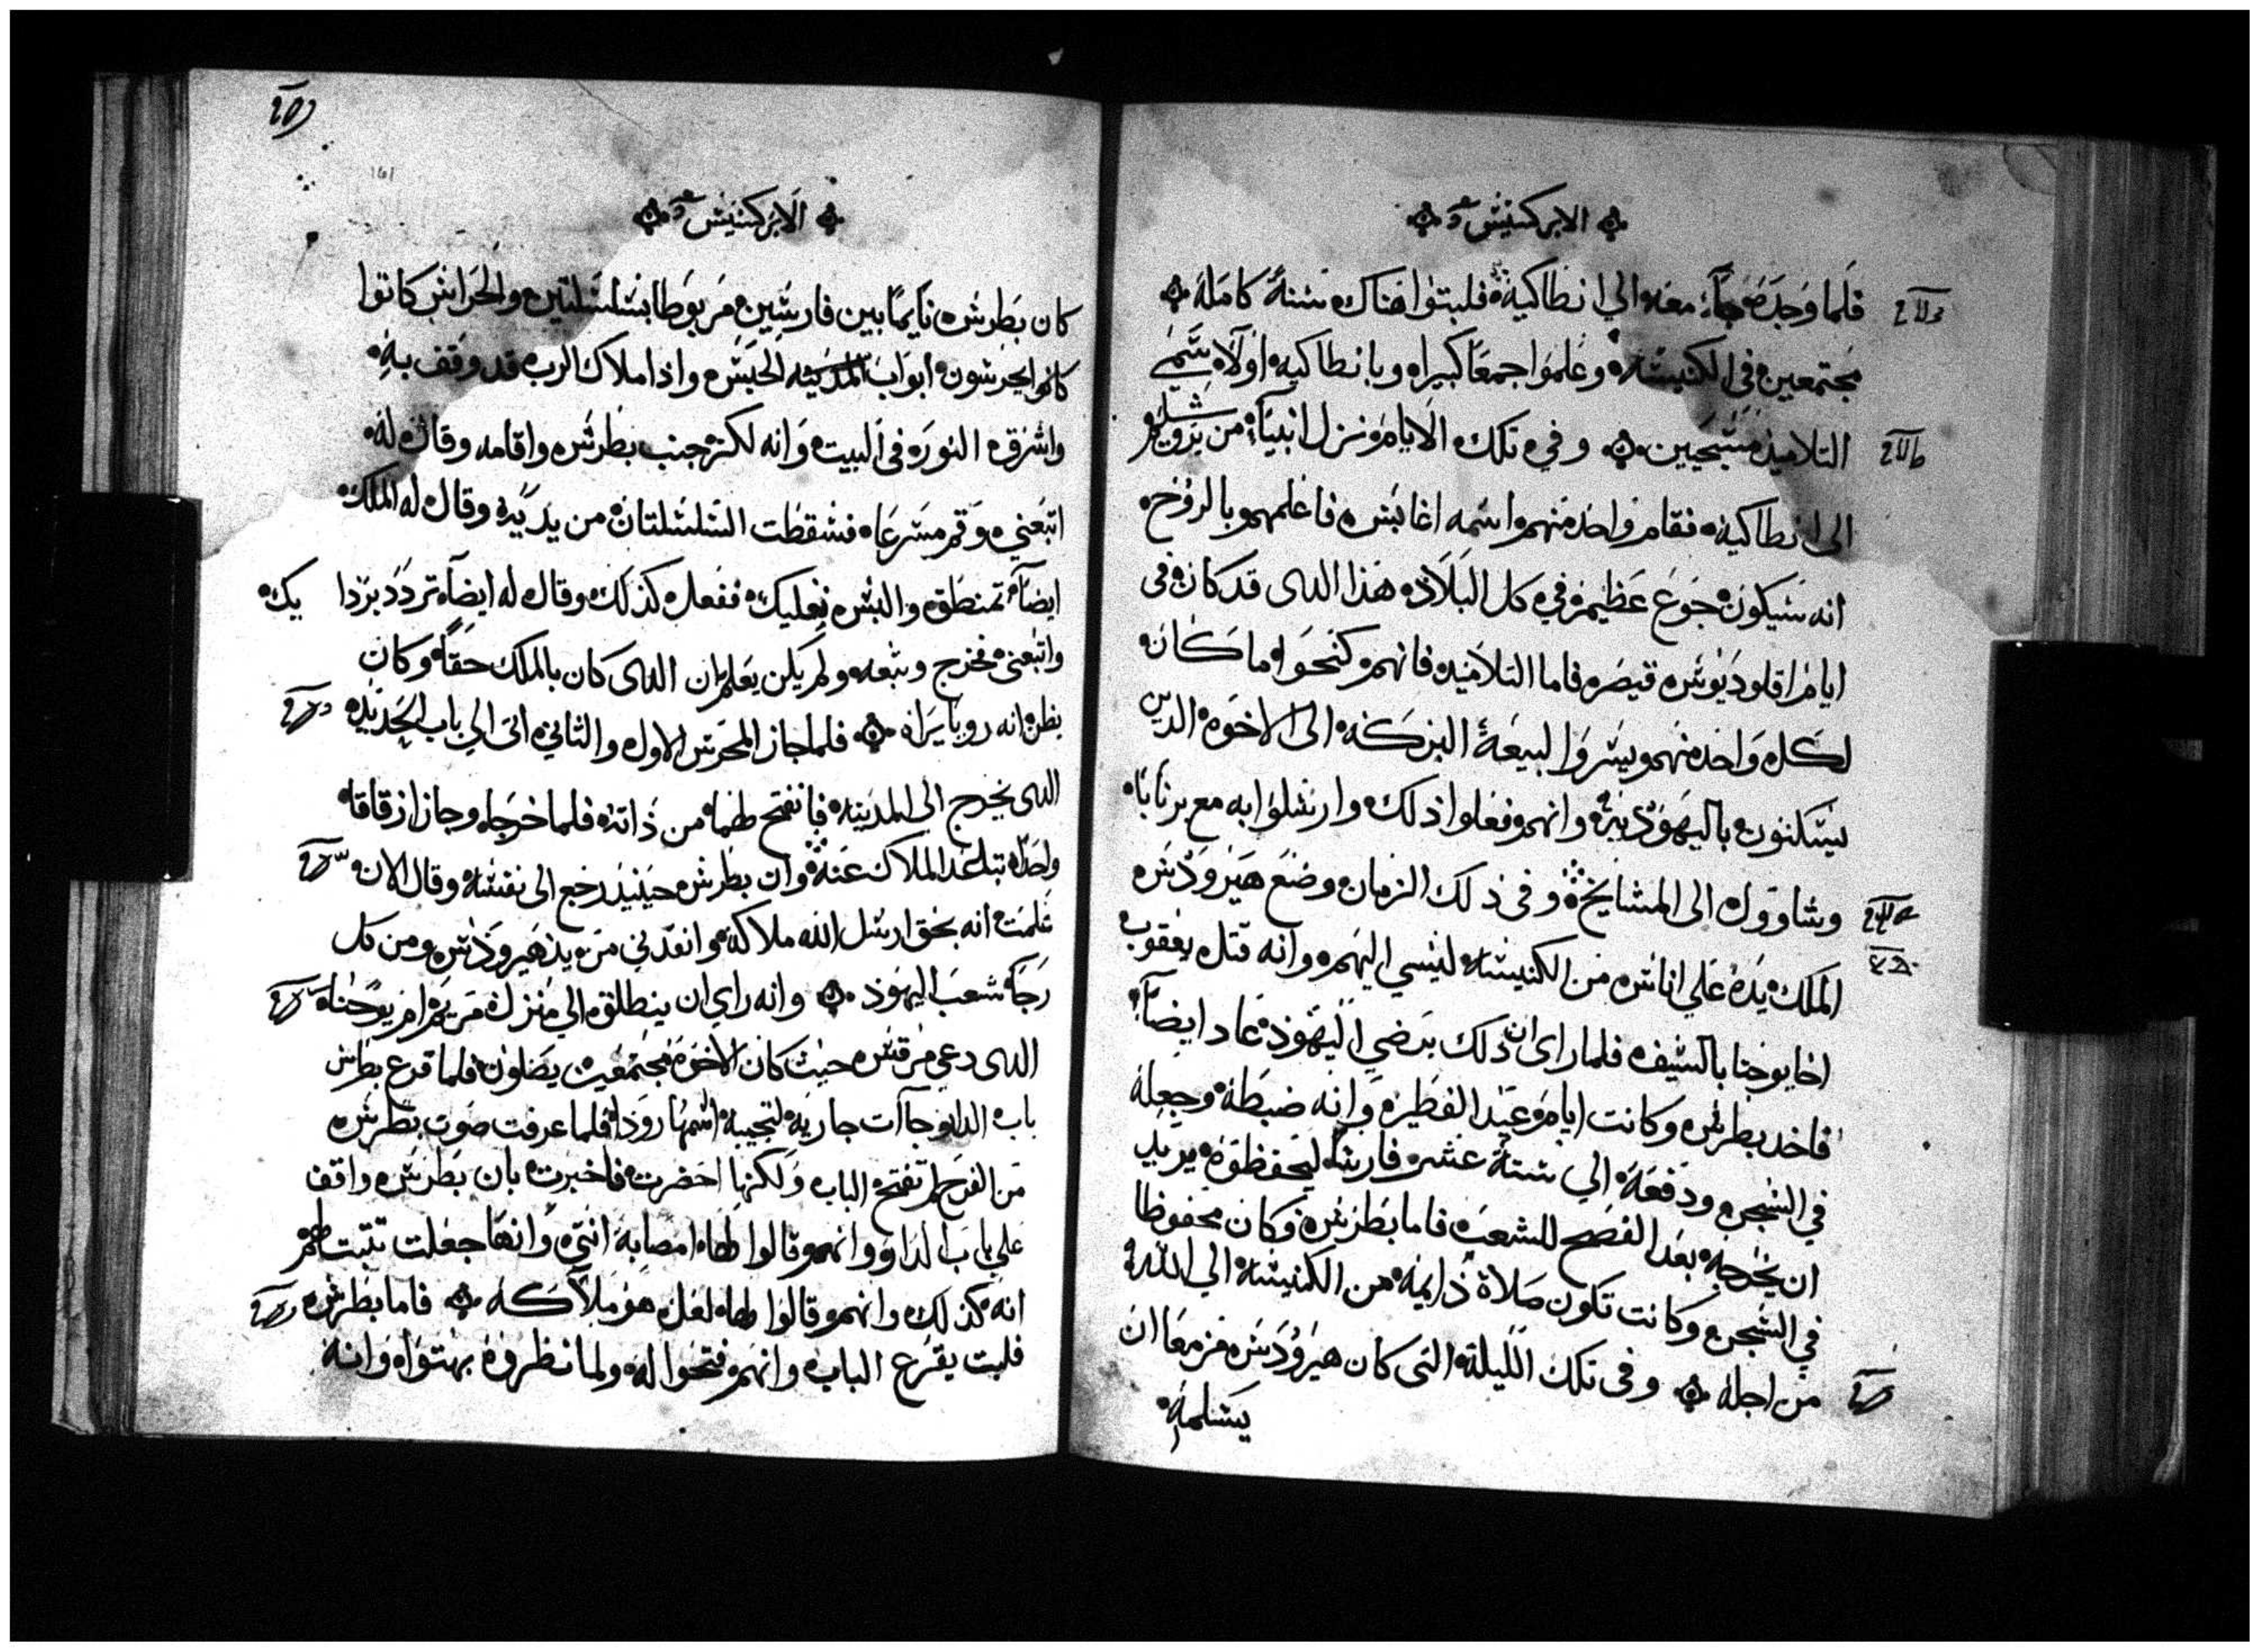 الابركسيس
فلما وجده جاء معه الي انطاكية فلبتوا هناك سنة كاملة
مجتمعين في الكنيسة وعلموا جمعا كبيرا وبانطاكيه اولا سمي
التلاميذ مسيحيين وفي تلك الايام نزل انبياء من يروشليم
الى انطاكية فقام واحد منهم اسمه اغابس فاعلمهم بالروح
انه سيكون جوع عظيم في كل البلاد هذا الدى قد كان في
ايام اقلوديوس قيصر فاما التلاميد فانهم كنحوا ما كان
لكل واحد منهم يسروا لبيعة البركه الى الاخوة الدين
يسكنون باليهودية وانهم فعلوا ذلك وارسلوا به مع برنابا
وشاوول الى المشايخ وفى ذلك الزمان وضع هيرودس
الملك يده علي اناس من الكنيسة ليسي اليهم وانه قتل يعقوب
اخا يوحنا بالسيف فلما راى ان ذلك يرضي اليهود عاد ايضا
فاخد بطرس وكانت ايام عيد الفطير وانه ضبطه وجعله
في السجن ودفعه الي ستة عشر فارسا ليحفظوه يريد
ان يخرجه بعد الفصح للشعب فاما بطرس فكان محفوظا
في السجن وكانت تكون صلاة دايمة من الكنيسة الي الله
من اجله وفى تلك الليلة التى كان هيرودس مزمعا ان
يسلمه
الابركسيس
كان بطرس نايما بين فارسين مربوطا بسلسلتين والحراس كانوا
كانوا يحرسون ابواب المدينه الحبس واذا ملاك الرب قد وقف به
واشرق النور في البيت وانه لكز جنب بطرس واقامه وقال له
اتبعني وقم مسرعا فسقطت السلسلتان من يديه وقال له الملك
ايضا تمنطق والبس نعليك ففعل كذلك وقال له ايضا تردد بردا يك
واتبعنى فخرج وتبعه ولم يكن يعلم ان الدى كان بالملك حقا وكان
يظن انه رويا يراه فلما جاز المحرس الاول والثاني اتى الي باب الحديد
الدى يخرج الى المدينة فانفتح لهما من ذاته فلما خرجا وجازا زقاقا
واحدا تباعد الملاك عنه وان بطرس حينيذ رجع الى نفسه وقال الان
علمت انه بحق ارسل الله ملاكه وانقدني من يد هيرودس ومن كل
رجا شعب اليهود وانه راي ان ينطلق الي منزل مريم ام يوحنا
الدى دعي مرقس حيث كان الاخوة مجتمعين يصلون فلما قرع بطرس
باب الدار جآات جارية لتجيبه اسمها رودا فلما عرفت صوت بطرس
من الفرح لم تفتح الباب ولكنها احضرت فاخبرت بان بطرس واقف
علي باب الدار وانهم قالوا لها امصابة انتي وانها جعلت تتبت لهم
انه كذلك وانهم قالوا لها لعل هو ملاكه فاما بطرس
فلبت يقرع الباب وانهم فتحوا له ولما نظروه بهتوا وانه